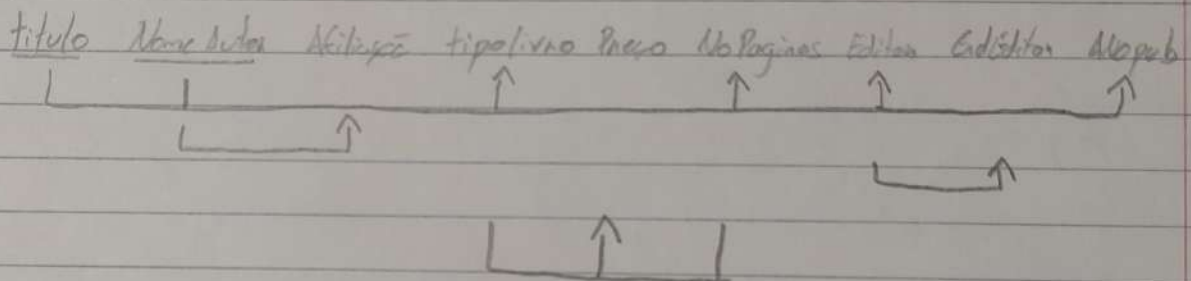 titulo Nome Autor Afiliação tipolivro Preço NoPaginas Editor EndEditor Anopub